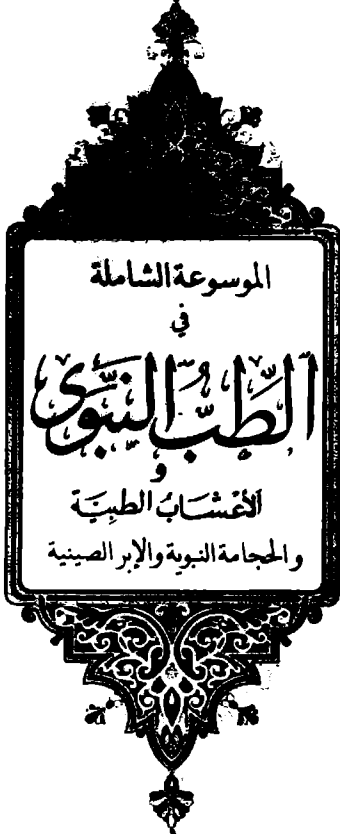 الموسوعة الشاملة
في
الطِّبُّ النَّبَوِي
و
الأَعْشَابُ الطبِيَّة
والحجامة النبوية والإبر الصينية